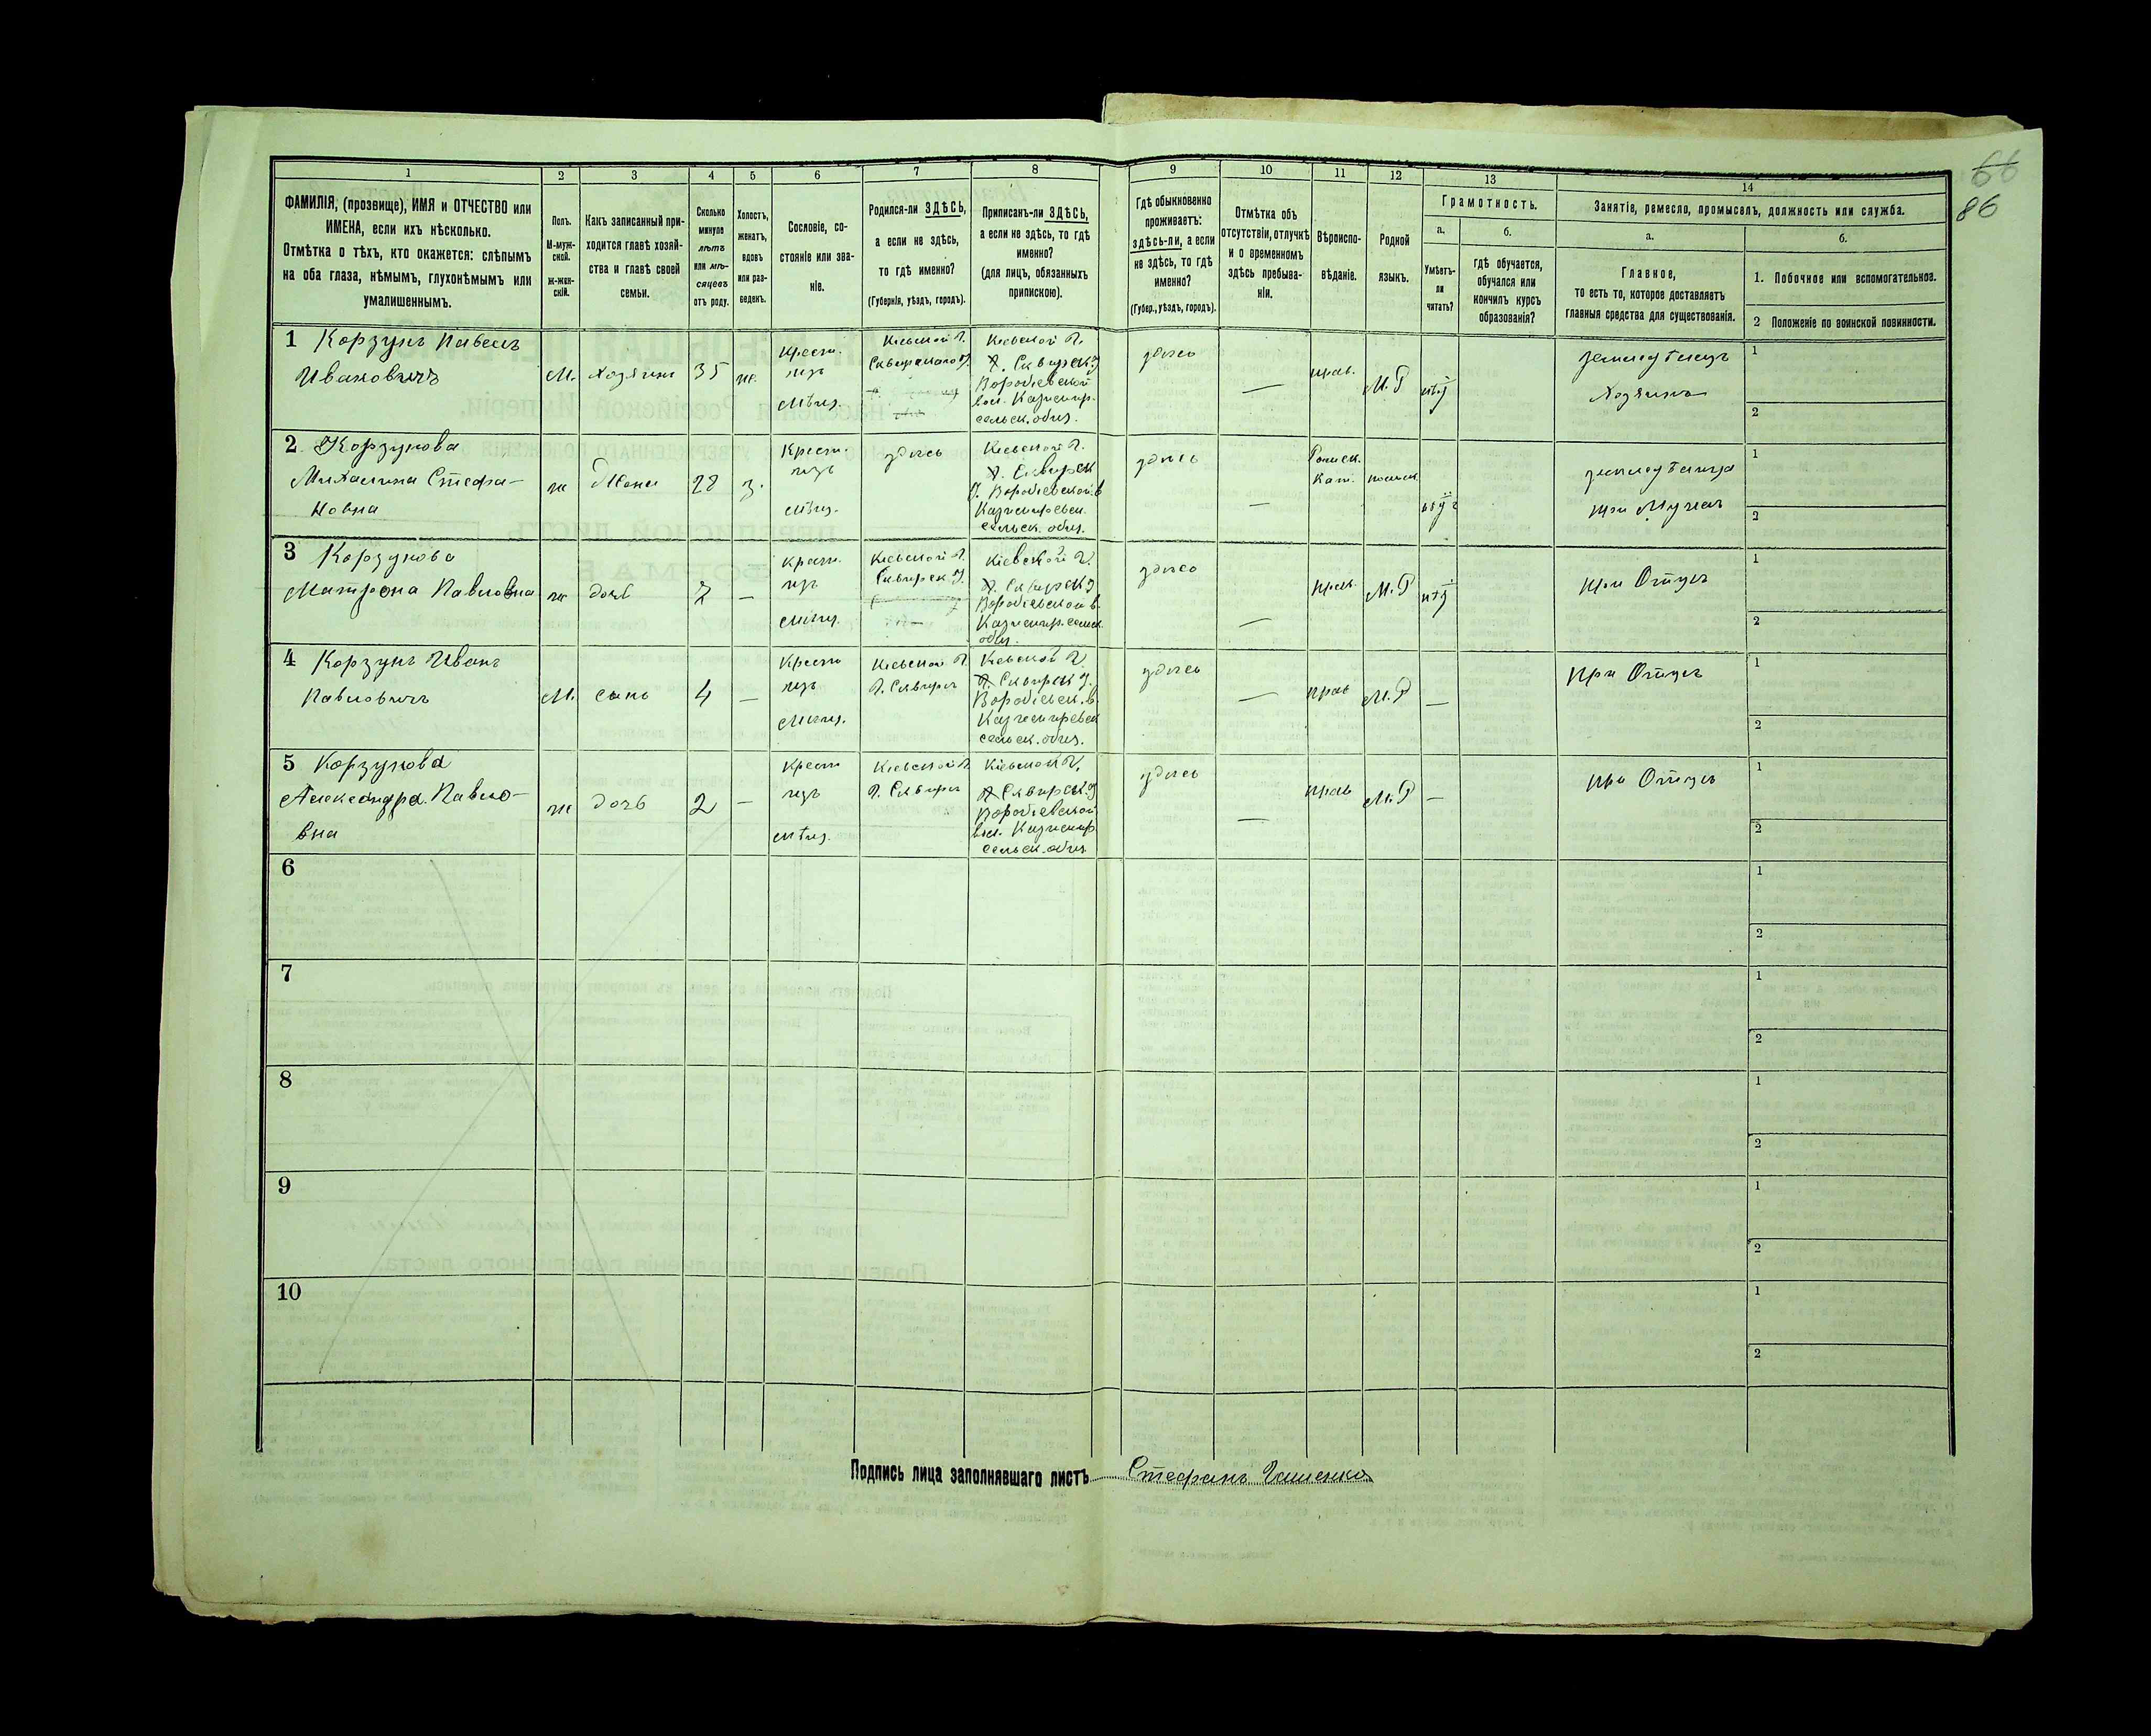 66
86
1
2
3
4
5
6
7
8
9
10
11
12
13
14
ФАМИЛІЯ, (прозвище), ИМЯ и ОТЧЕСТВО или
ИМЕНА, если ихъ нѣсколько.
Отмѣтка о тѣхъ, кто окажется: слѣпымъ
на оба глаза, нѣмымъ, глухонѣмымъ или
умалишеннымъ.
Полъ.
М-муж-
ской.
ж-жен-
скій.
Какъ записанный при-
ходится главѣ хозяй-
ства и главѣ своей
семьи.
Сколько
минуло
лѣтъ
или мѣ-
сяцевъ
отъ роду.
Холостъ,
женатъ,
вдовъ
или раз-
веденъ.
Сословіе, со-
стояніе или зва-
ніе.
Родился-ли ЗДѢСЬ,
а если не здѣсь,
то гдѣ именно?
(Губернія, уѣздъ, городъ).
Приписанъ-ли ЗДѢСЬ,
а если не здѣсь, то гдѣ
именно?
(для лицъ, обязанныхъ
припискою).
Гдѣ обыкновенно
проживаетъ:
здѣсь-ли, а если
не здѣсь, то гдѣ
именно?
(Губер., уѣздъ, городъ).
Отмѣтка объ
отсутствіи, отлучкѣ
и о временномъ
здѣсь пребыва-
ніи.
Вѣроиспо-
вѣданіе.
Родной
языкъ.
Грамотность.
а.
Умѣетъ-
ли
читать?
б.
гдѣ обучается,
обучался или
кончилъ курсъ
образованія?
Занятіе, ремесло, промыселъ, должность или служба.
а.
Главное,
то есть то, которое доставляетъ
главныя средства для существованія.
б.
1. Побочное или вспомогательное.
2 Положеніе по воинской повинности.
1 Корзунъ Павелъ
Ивановичъ
М.
хозяинъ
35
же.
Крест.
изъ
мѣщ.
Кіевской Г.
Сквирскаго У.
Кіевской Г.
Сквирск. У
Воробіевской
вол. Казимир.
сельск. общ.
здѣсь
—
прав.
М.Р
нѣт
земледѣлецъ
Хозяинъ
1
2
2 Корзунова
Михалина Стефа-
новна
ж
Жена
28
з.
Крест.
изъ
мѣщ.
здѣсь
Кіевской Г.
Сквирск
У. Воробіевской в
Казимиревск.
сельск. общ.
здѣсь
—
Римск.
Кат.
польск.
нѣт
земледѣлица
при Мужѣ
1
2
3 Корзунова
Матрона Павловна
ж
дочь
7
—
крест.
изъ
мѣщ.
Кіевской Г.
Сквирск. У.
Кіевской Г.
Сквирск У
Воробіевской в.
Казимир. сельск.
общ.
здѣсь
—
прав.
М.Р
нѣт
при Отцѣ
1
2
4 Корзунъ Иванъ
Павловичъ
М.
сынъ
4
—
Крест
изъ
Мѣщ.
Кіевской Г.
Г. Сквира
Кіевской Г.
Сквирск У.
Воробіевск. в.
Казимиревск
сельск. общ.
здѣсь
—
прав
М.Р
—
При Отцѣ
1
2
5 Корзунова
Александра Павло-
вна
ж
дочь
2
—
Крест
изъ
мѣщ.
Кіевской Г.
Г. Сквира
Кіевской Г.
Сквирск. У
Воробіевской
вол. Казимир
сельск. общ
здѣсь
—
прав
М.Р
—
при Отцѣ
1
2
6
1
2
7
1
2
8
1
2
9
1
2
10
1
2
Подпись лица заполнявшаго листъ Стефанъ